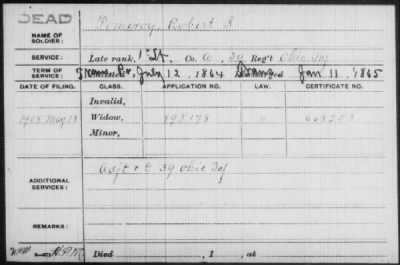 DEAD
NAME OF SOLDIER: Pomeroy, Robert S
SERVICE: Late rank, 1st Lt, Co. A, 39 Reg't Ohio Inf
TERM OF SERVICE: Enlisted July 12, 1864 Discharged Jan 11, 1865
DATE OF FILING. CLASS. APPLICATION NO. LAW. CERTIFICATE NO.
Invalid,
1908 May 18 Widow, 893178 668253
Minor,
ADDITIONAL SERVICES: Adjt + G 39 Ohio Inf
REMARKS:
Died , 1 , at